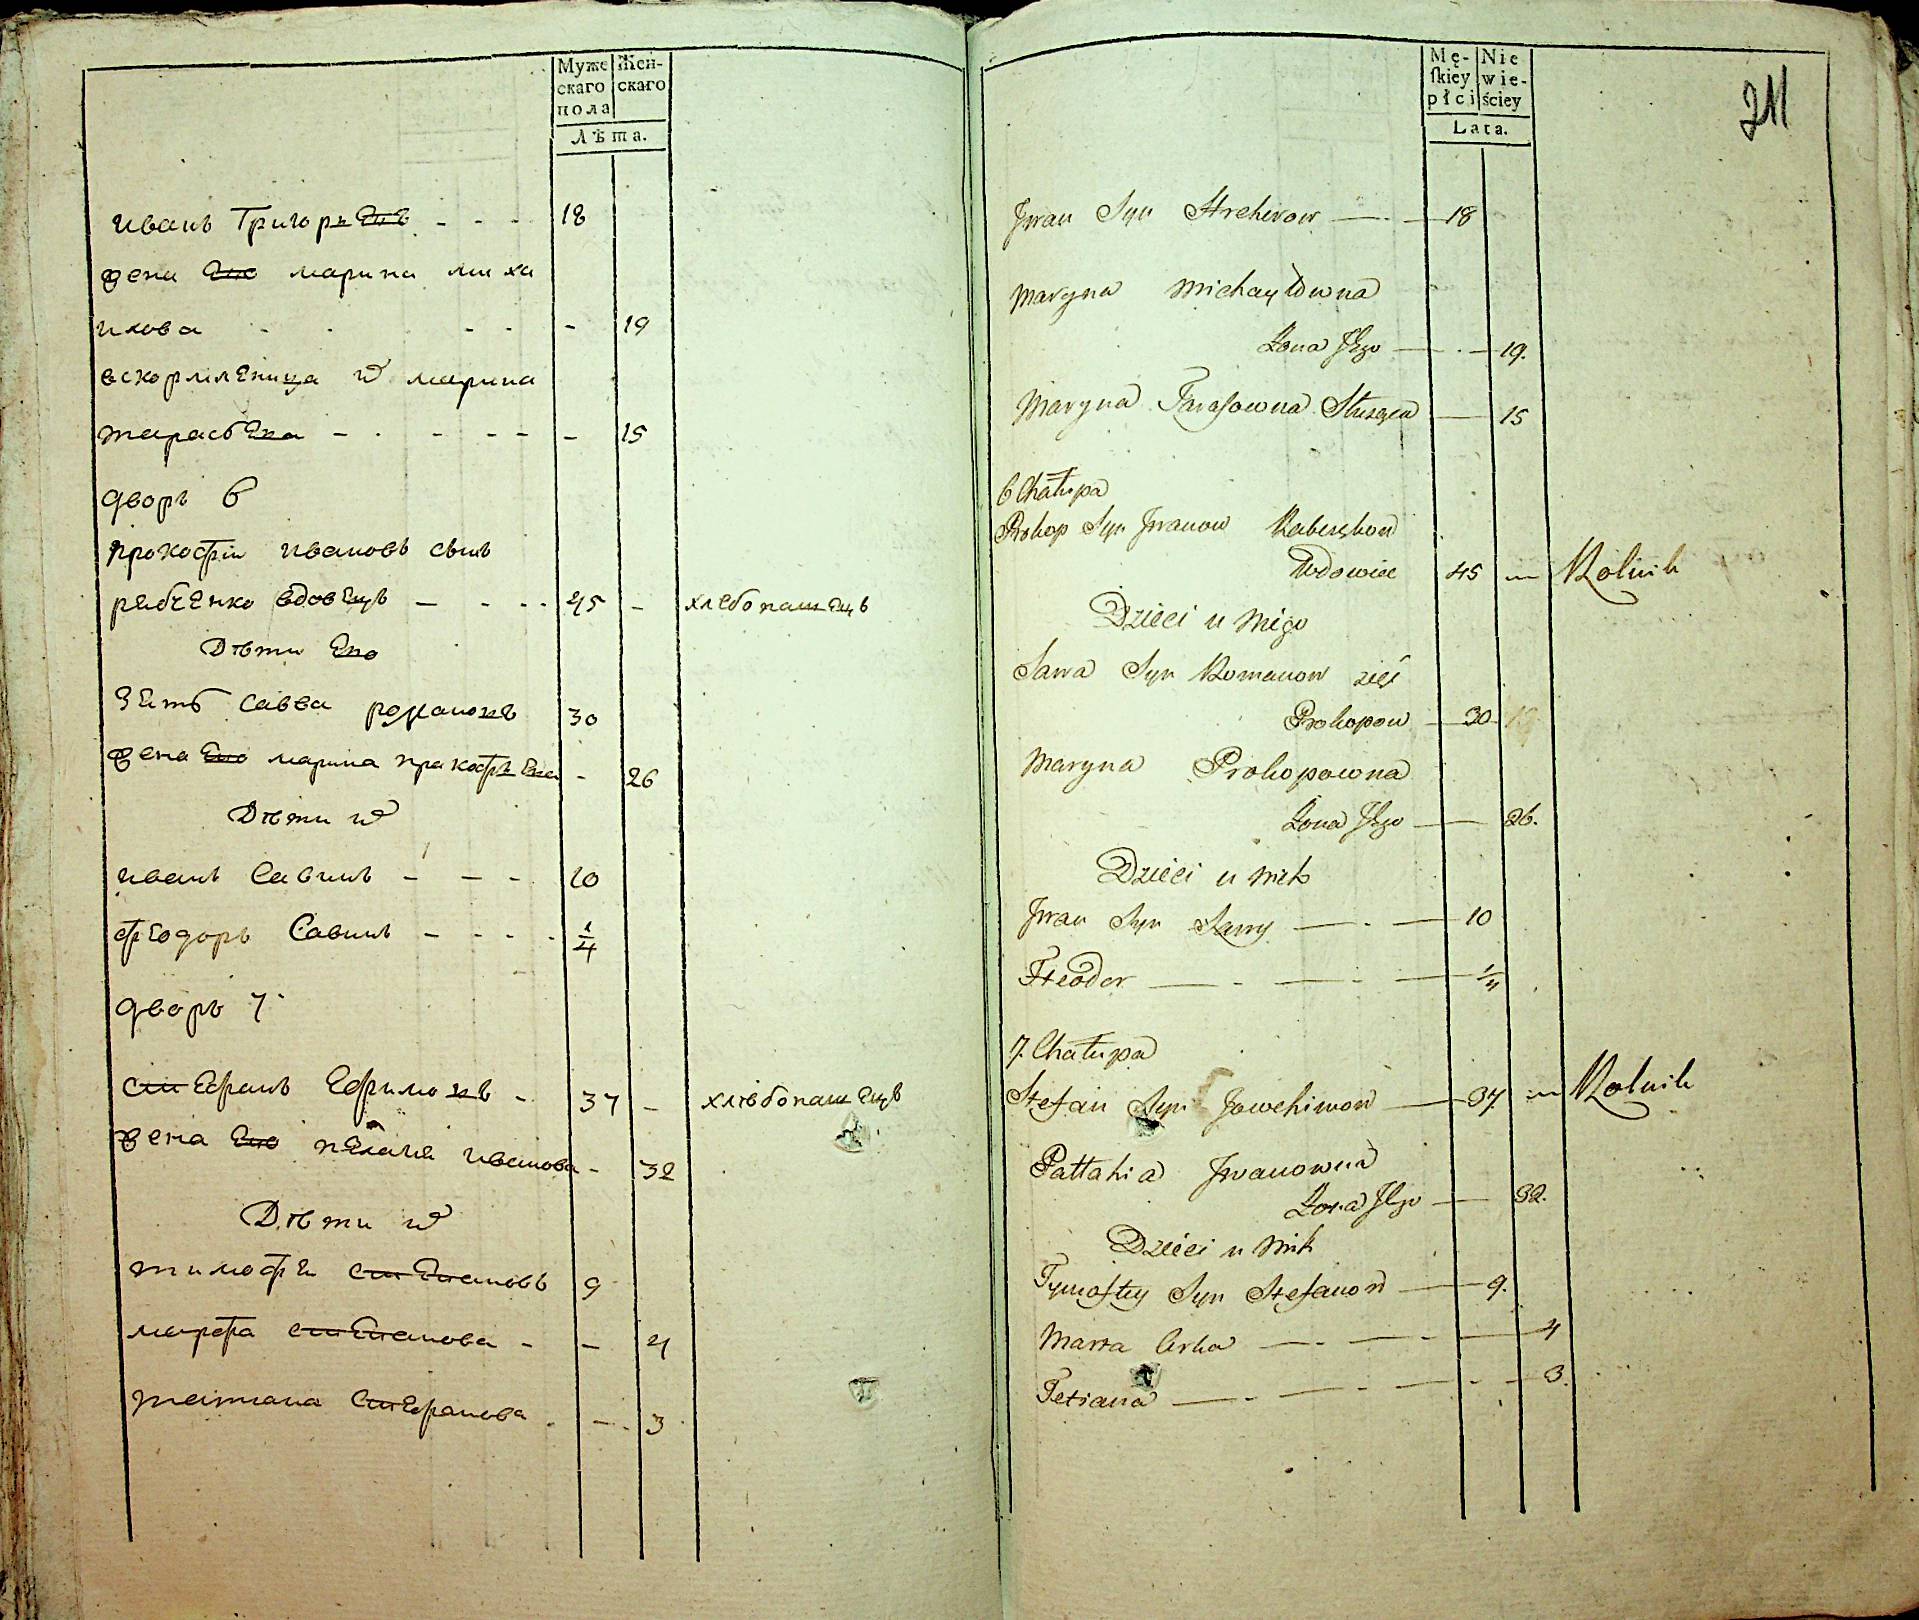 Муже
скаго
пола
Жен-
скаго
Лѣта.
иванъ Григорьевъ - - - 18
жена Ево марина миха
илова - - - - 19
вскормленица и^х марина
тарасовна - - - - - 15
дворъ 6
прокофiи ивановъ сынъ
рябченко вдовецъ - - - - 45 - хлебопашецъ
Дѣти Ево
Зять савва романовъ 30
жена Ево марина пракофьева - 26
Дѣти и^х
иванъ Савинъ - - - 10
феодоръ Савинъ - - - - 1/4
дворъ 7
стефанъ Ефимовъ - 37 - хлѣбопашецъ
жена Ево пелагия иванова - 32
Дѣти и^х
тимофеи степановъ 9
марфа степанова - - 4
татиана стефанова - - - 3
Mę-
skiey
płci
Nie
wie-
ściey
Lata.
211
Jwan Syn Hrehorow — - — 18
Maryna Michayłowna
Żona Jego — - — 19.
Maryna Tarasowna Służąca — 15
6 Chałupa
Prokop Syn Jwanow Rabczykow
Wdowiec 45 — Rolnik
Dzieci u niego
Sawa Syn Romanow zięć
Prokopow — 30
Maryna Prokopowna
Żona Jego — 26.
Dzieci u nich
Jwan Syn Sawy — - — 10
Fteodor — - — - — 1/4
7. Chałupa
Stefan Syn Jowchimow — 37. — Rolnik
Pałłahia Jwanowna
Żona Jego — 32.
Dzieci u nich
Tymoftey Syn Stefanow — 9.
Marta Crka — - — - — 4
Tetiana — - — - — - 3.